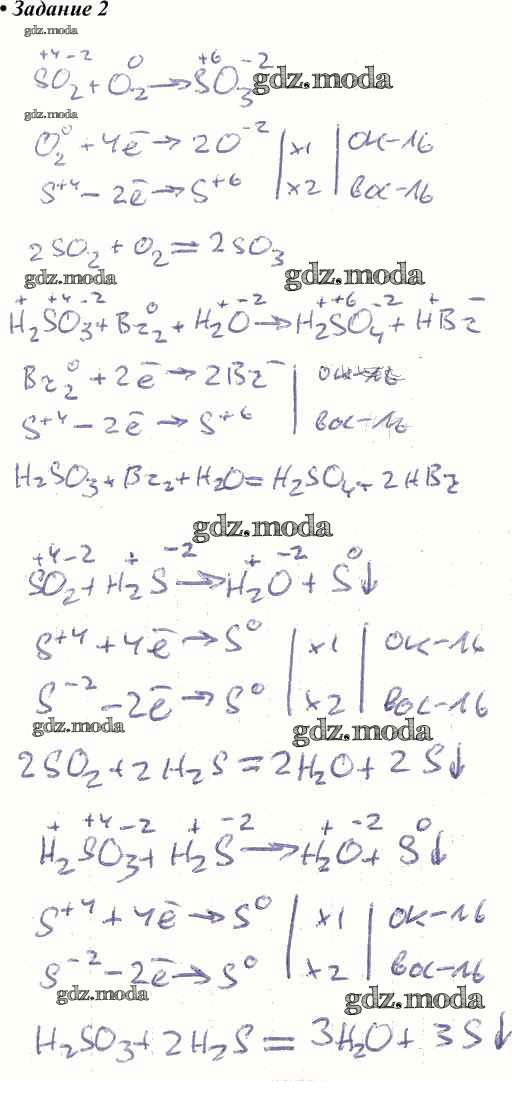 • Задание 2
gdz.moda
+4 -2 0 +6 -2
SO2 + O2 → SO3 gdz.moda
gdz.moda
O2⁰ + 4ē → 2O⁻² | ×1 | ок-ль
S⁺⁴ - 2ē → S⁺⁶ | ×2 | вос-ль
2SO2 + O2 = 2SO3
gdz.moda gdz.moda
+ +4 -2 0 + -2 + +6 -2 + -
H2SO3 + Br2 + H2O → H2SO4 + HBr
Br2⁰ + 2ē → 2Br⁻ | ок-ль
S⁺⁴ - 2ē → S⁺⁶ | вос-ль
H2SO3 + Br2 + H2O = H2SO4 + 2HBr
gdz.moda
+4 -2 + -2 + -2 0
SO2 + H2S → H2O + S↓
S⁺⁴ + 4ē → S⁰ | ×1 | ок-ль
S⁻² - 2ē → S⁰ | ×2 | вос-ль
gdz.moda gdz.moda
2SO2 + 2H2S = 2H2O + 2S↓
+ +4 -2 + -2 + -2 0
H2SO3 + H2S → H2O + S↓
S⁺⁴ + 4ē → S⁰ | ×1 | ок-ль
S⁻² - 2ē → S⁰ | ×2 | вос-ль
gdz.moda gdz.moda
H2SO3 + 2H2S = 3H2O + 3S↓